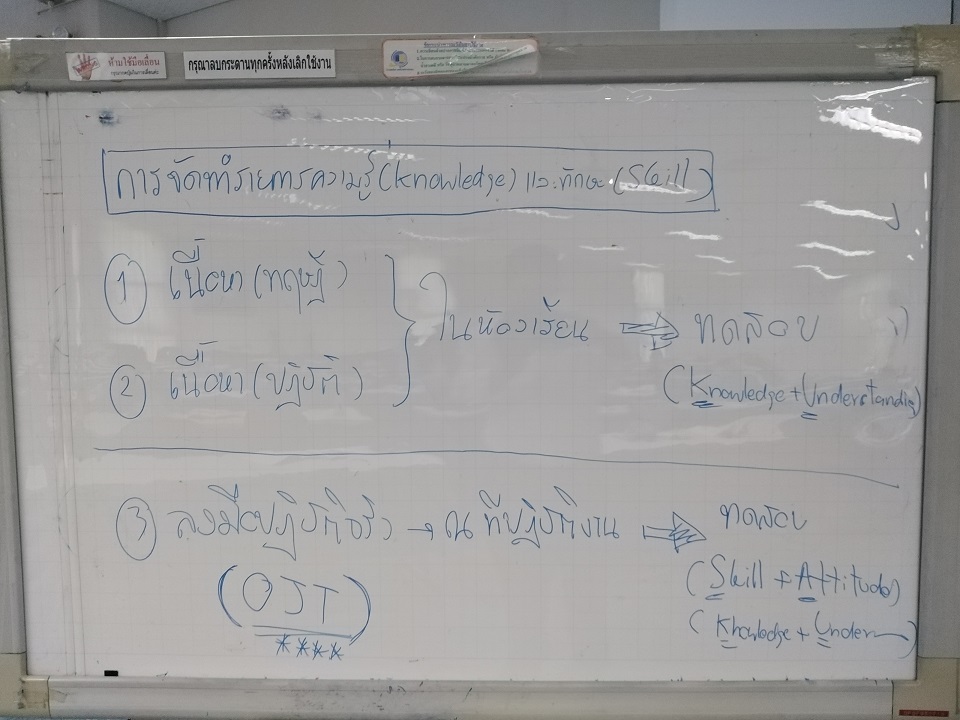 ห้ามใช้มือเลื่อน
กรุณาลบกระดานทุกครั้งหลังเลิกใช้งาน
การจัดทำรายการความรู้ (knowledge) และทักษะ (Skill)
① เนื้อหา (ทฤษฎี)
ในห้องเรียน ⇒ ทดสอบ
② เนื้อหา (ปฏิบัติ)
(Knowledge + Understanding)
③ ลงมือปฏิบัติจริง → ณ ที่ปฏิบัติงาน ⇒ ทดสอบ
(OJT)
****
(Skill + Attitude)
(Knowledge + Under